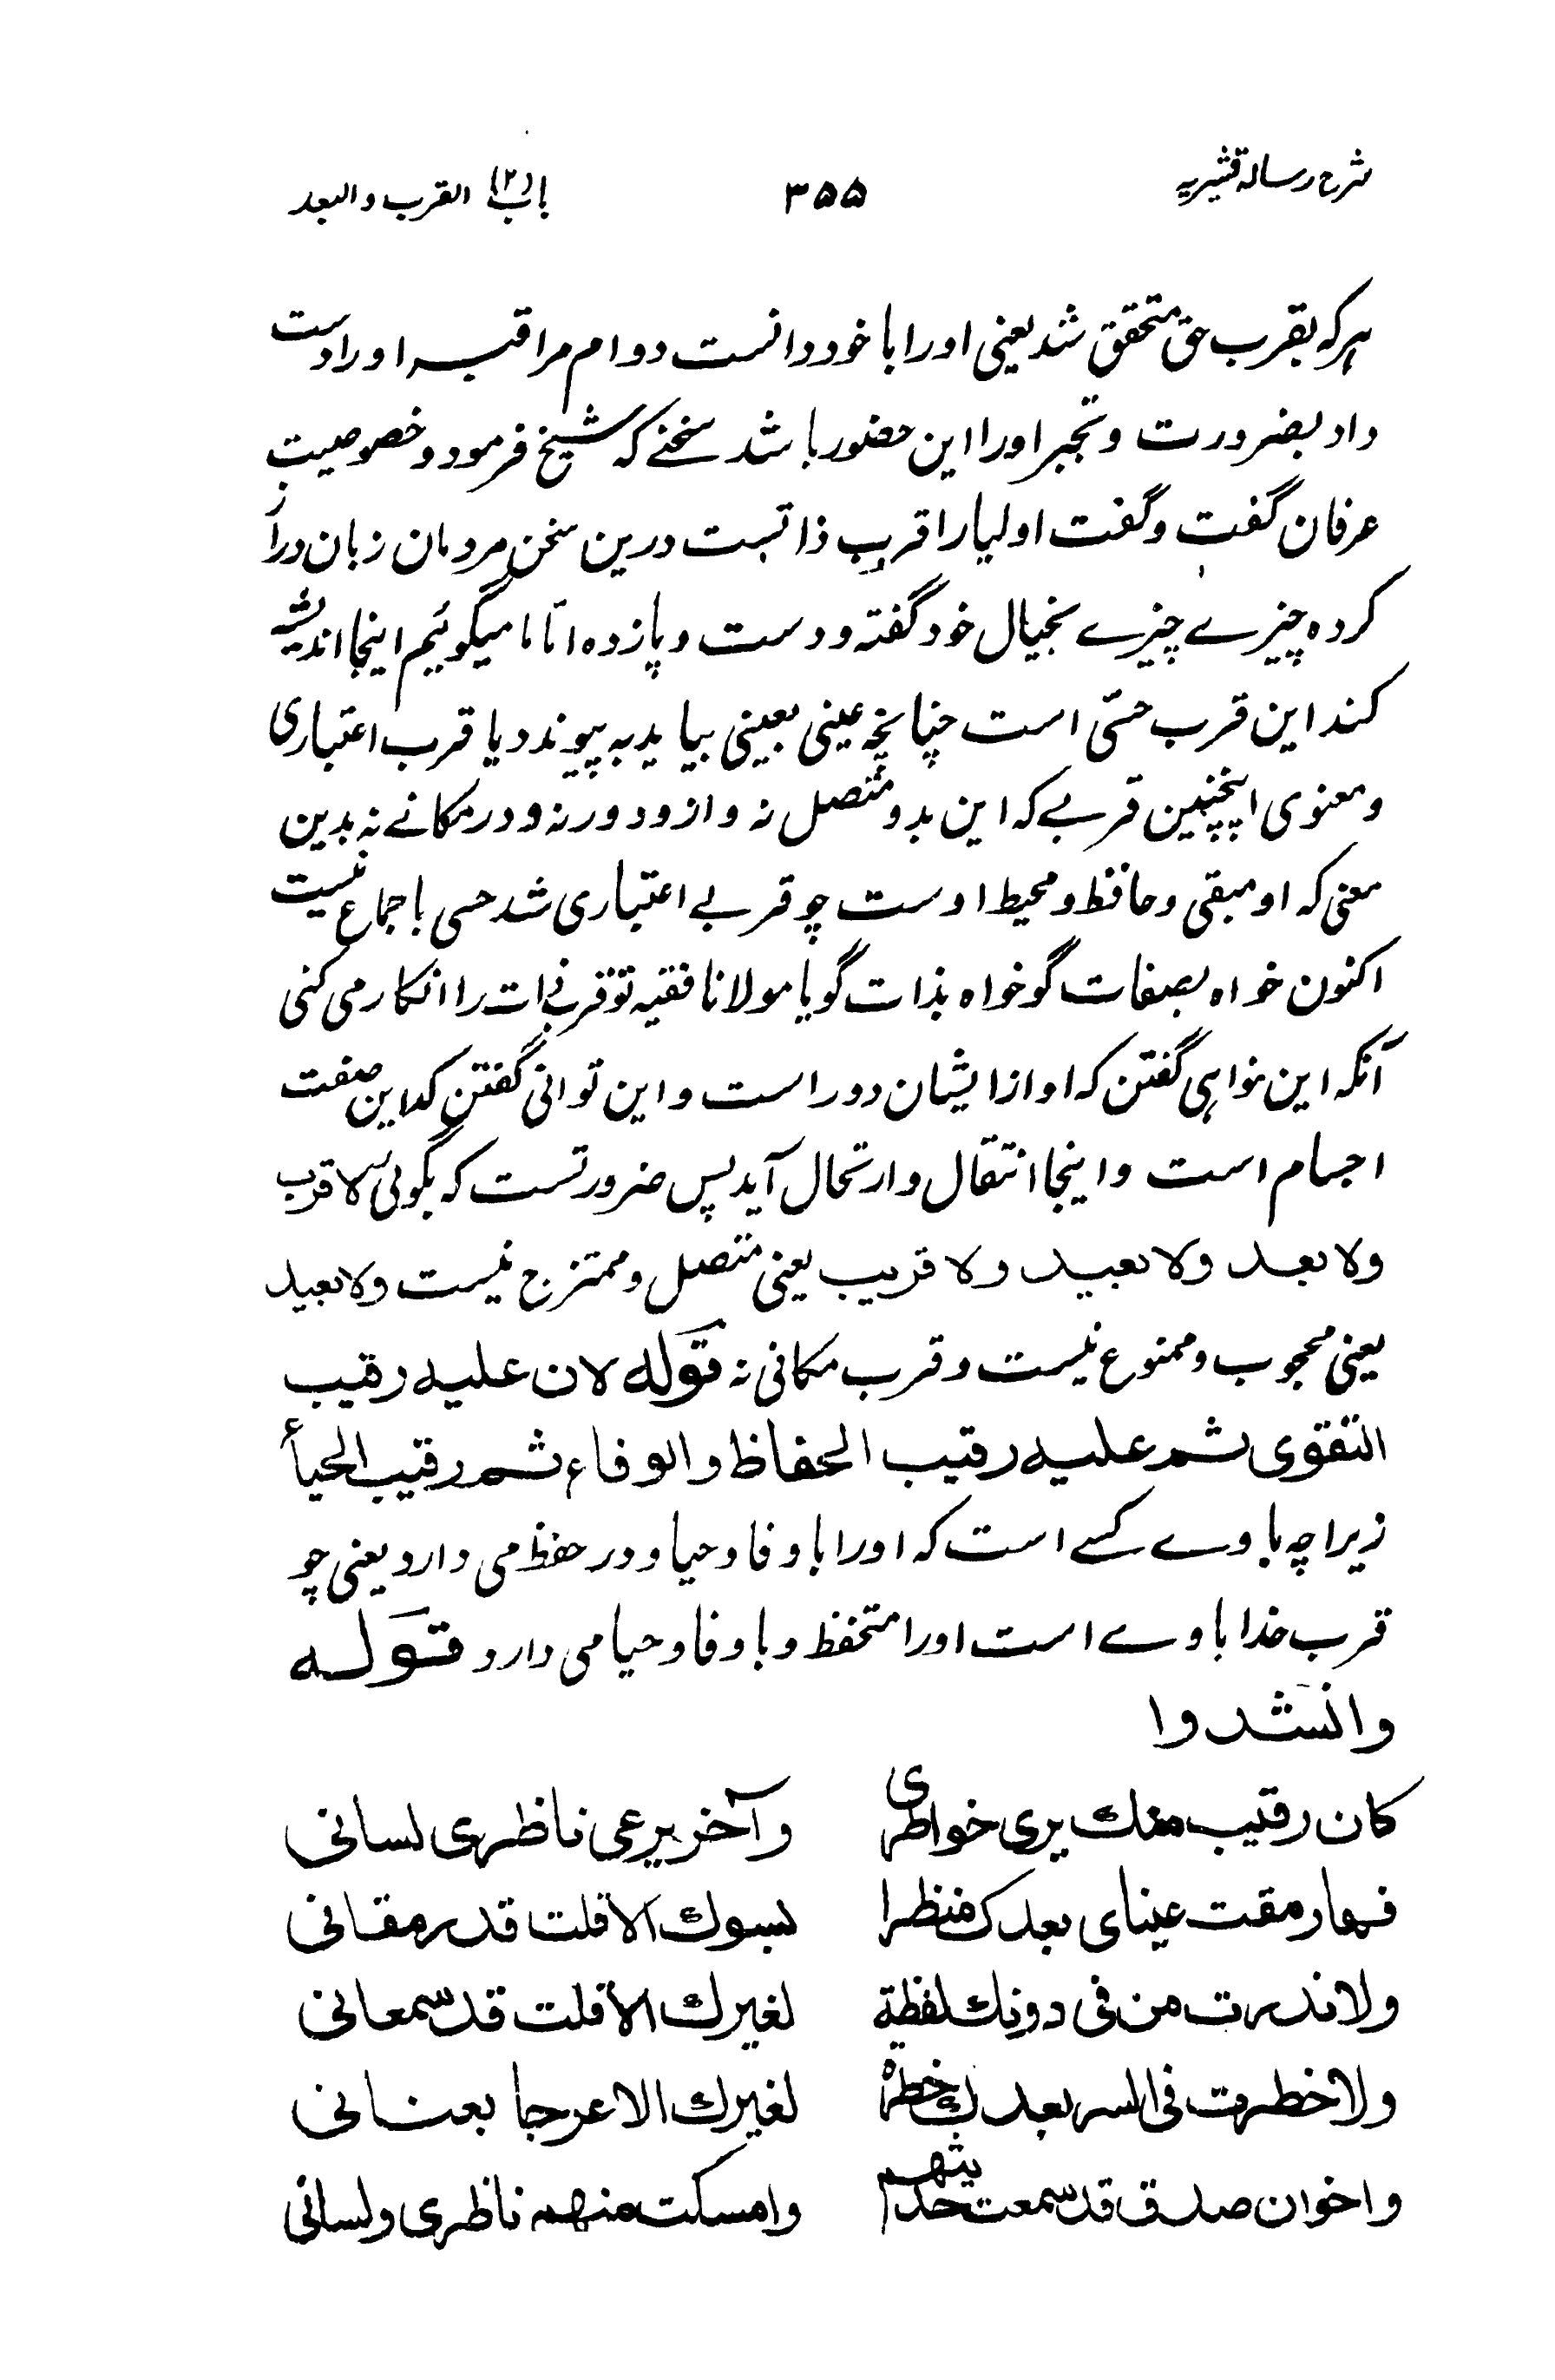 شرح رسالہ قشیریہ ۳۵۵ باب (۲) القرب والبعد
ہرکہ بقرب حق متحقق شد یعنی او را با خود دانست دوام مراقبہ او را دست
داد بضرورت وتجبر او را این حضور باشد سخنے کہ شیخ فرمود و خصوصیت
عرفان گفت و گفت اولیا را قرب ذاتست درین سخن مردمان زبان دراز
کردہ چیزے چیزے بخیال خود گفتہ و دست و پا زدہ اما ما میگوئیم اینجا اندیشہ
کند این قرب حسّی است چنانچہ عینی بعینی بیاید بہ پیوندد یا قرب اعتباری
و معنوی اینچنین قربے کہ این بدو متصل نہ و ازو دور نہ و در مکانے نہ بدین
معنی کہ او مبقی و حافظ و محیط اوست چو قربے اعتباری شد حسی باجماع نیست
اکنون خواہ بصفات گو خواہ بذات گو یا مولانا فقیہ تو قرب ذات را انکار می کنی
آنکہ این نواہی گفتن کہ او ازایشان دور است و این توانی گفتن کہ این صفت
اجسام است و اینجا انتقال و ارتحال آید پس ضرورتست کہ بگوئی لا قرب
ولا بعد ولا بعید ولا قریب یعنی متصل و ممتزج نیست ولا بعید
یعنی محجوب و ممنوع نیست و قرب مکانی نہ قولہ لان علیہ رقیب
التقوی ثم علیہ رقیب الحفاظ والوفاء ثم رقیب الحیاء
زیراچہ باوے کسے است کہ او را با وفا و حیا و در حفظ می دارد یعنی چو
قرب خدا باوے است او را متحفظ و با وفا و حیا می دارد قولہ
وانشدوا
کان رقیب منک یری خواطری وآخر یرعی ناظری لسانی
فما رمقت عینای بعدک منظرا لسوک الا قلت قد رمقانی
ولا ندرت من فی دونک لفظة لغیرک الا قلت قد سمعانی
ولا خطرت فی السر بعدک خطرة لغیرک الا عرجا بعنانی
واخوان صدق قد سمعت حدیثهم وامسکت منهم ناظری ولسانی